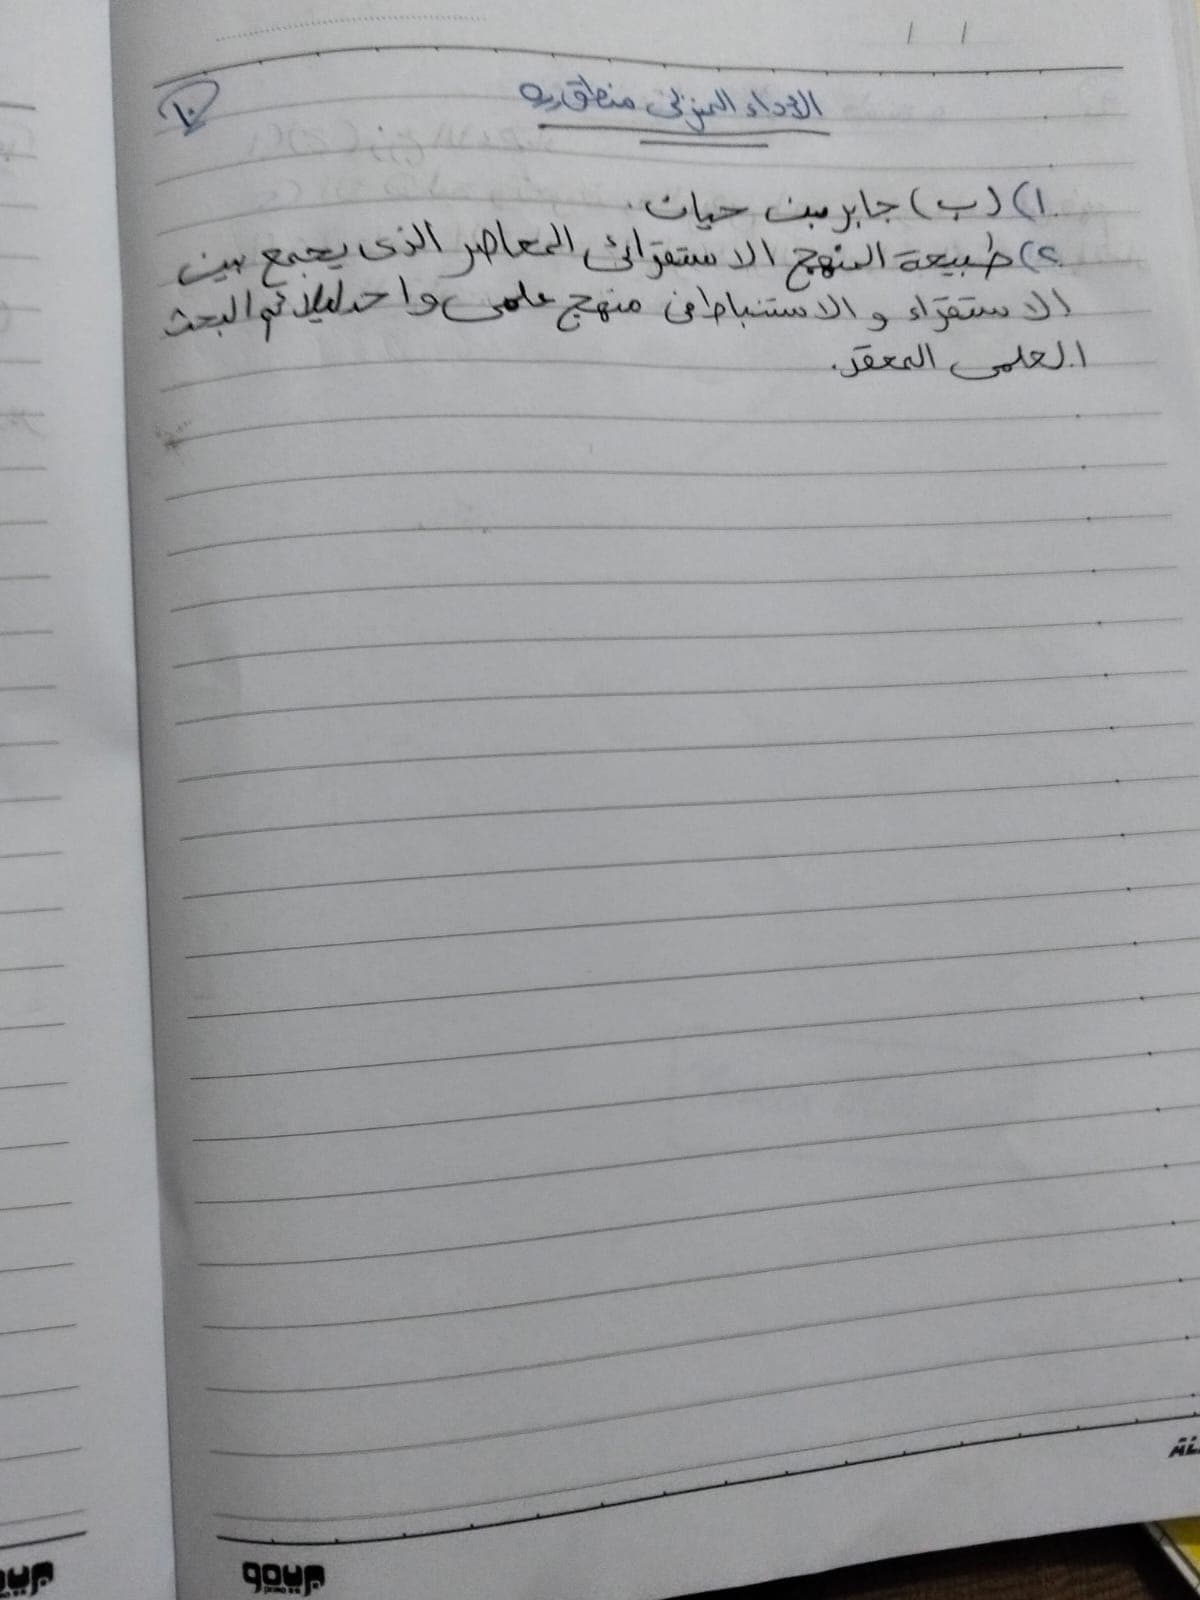 الأداء المنزلى منطق
١٠
١) (ب) جابر بن حيان.
٢) طبيعة المنهج الاستقرائى المعاصر الذى يجمع بين
الاستقراء و الاستنباط فى منهج علمى واحد ليلائم البحث
العلمى المعقد.